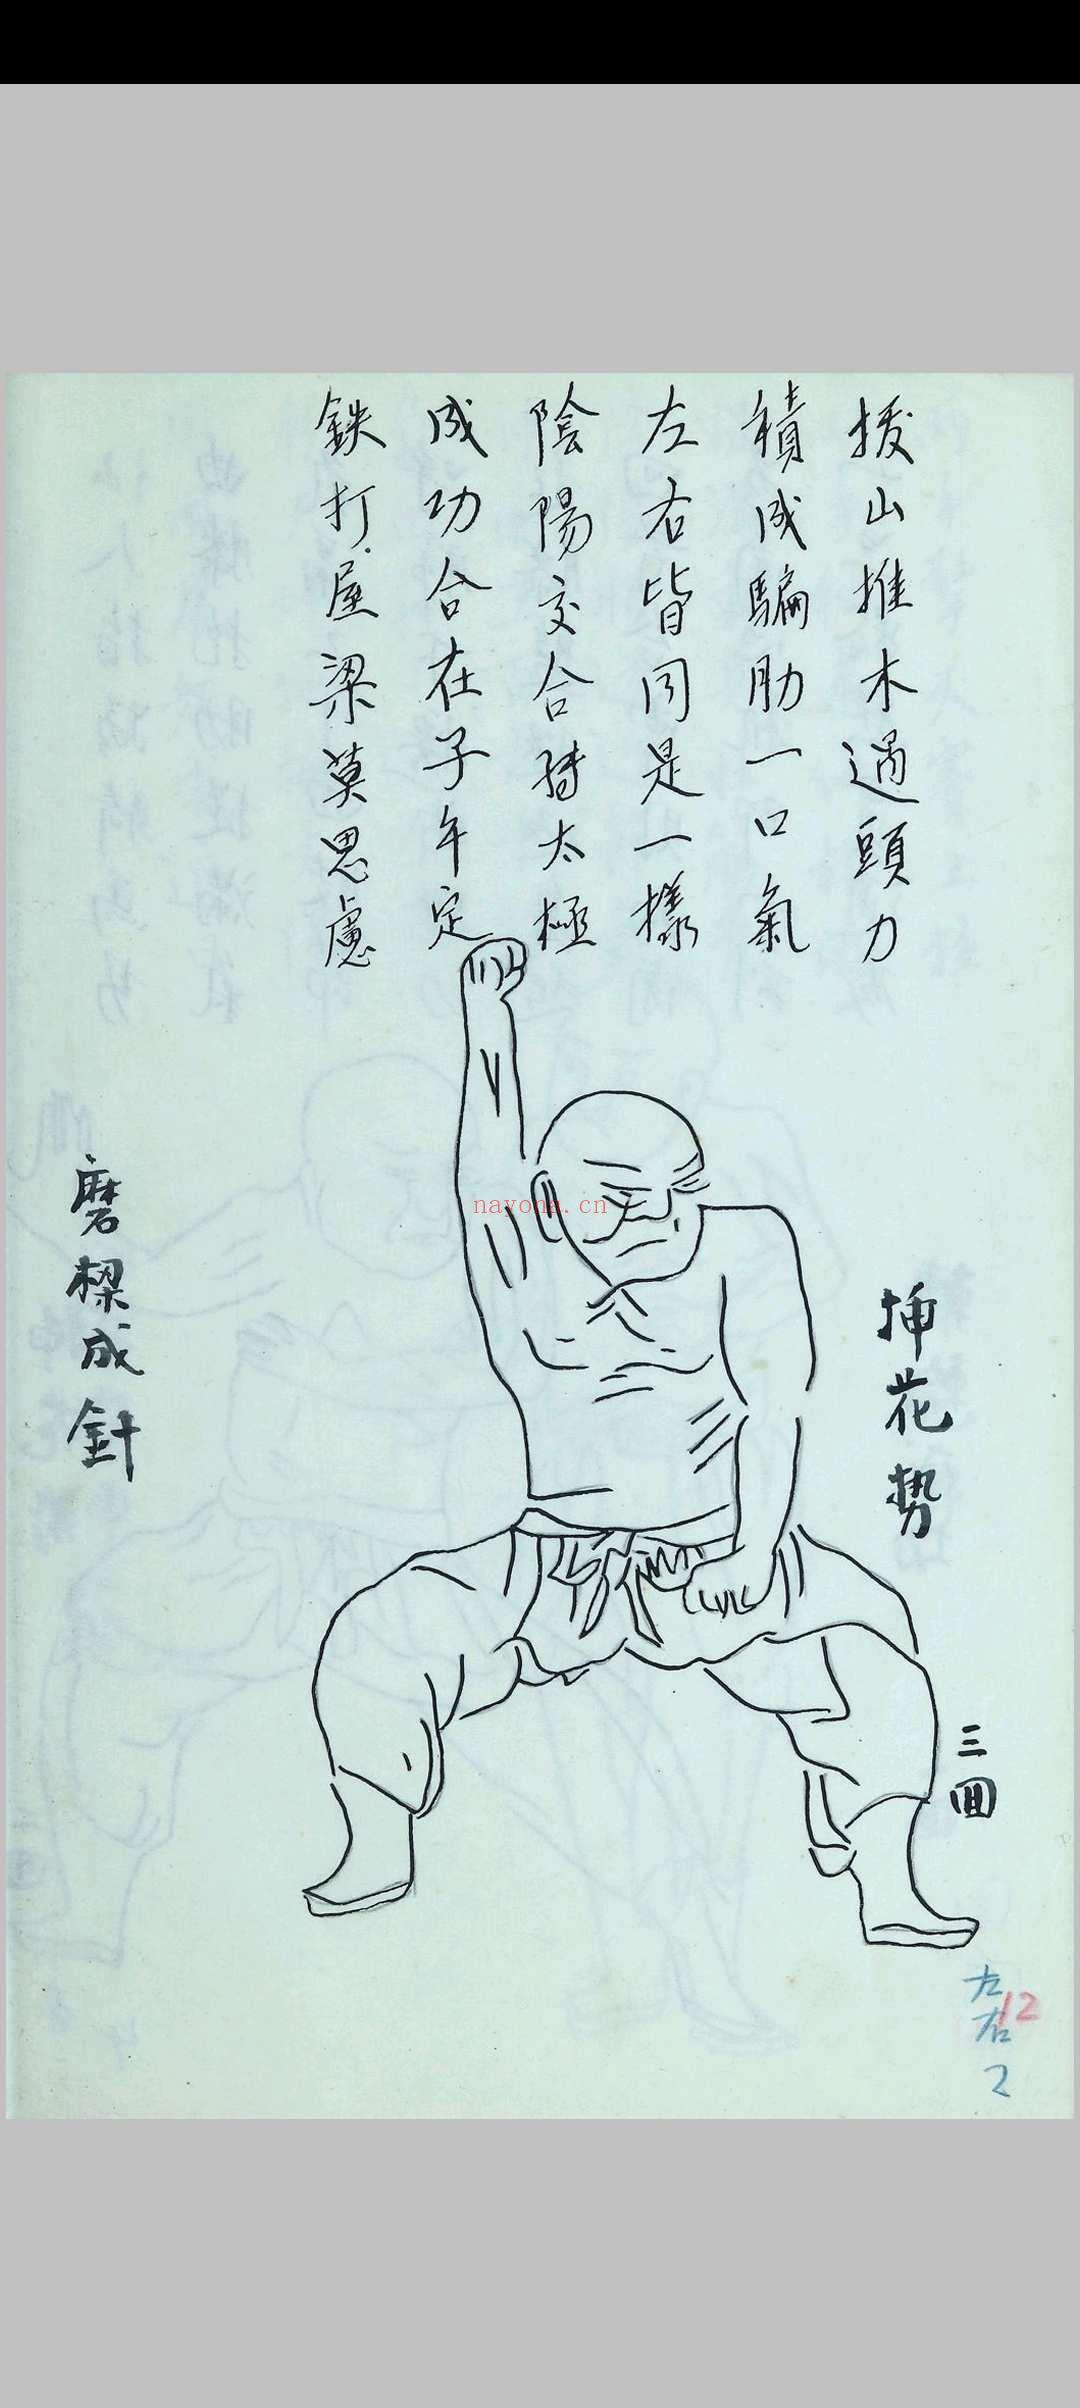 拔山推木過頭力
積成騙肋一口氣
左右皆同是一樣
陰陽交合轉太極
成功合在子午定
鉄打屋梁莫思慮
挿花势
磨樑成針
三囬
左右 2
12
nayona.cn